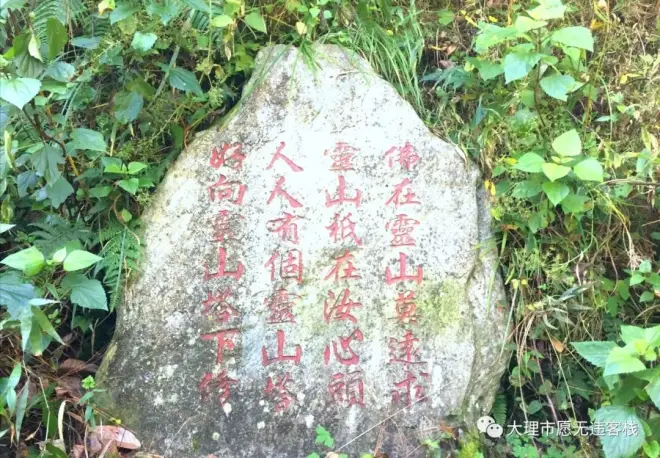 佛在靈山莫遠求
靈山祇在汝心頭
人人有個靈山塔
好向靈山塔下修
大理市愿无违客栈